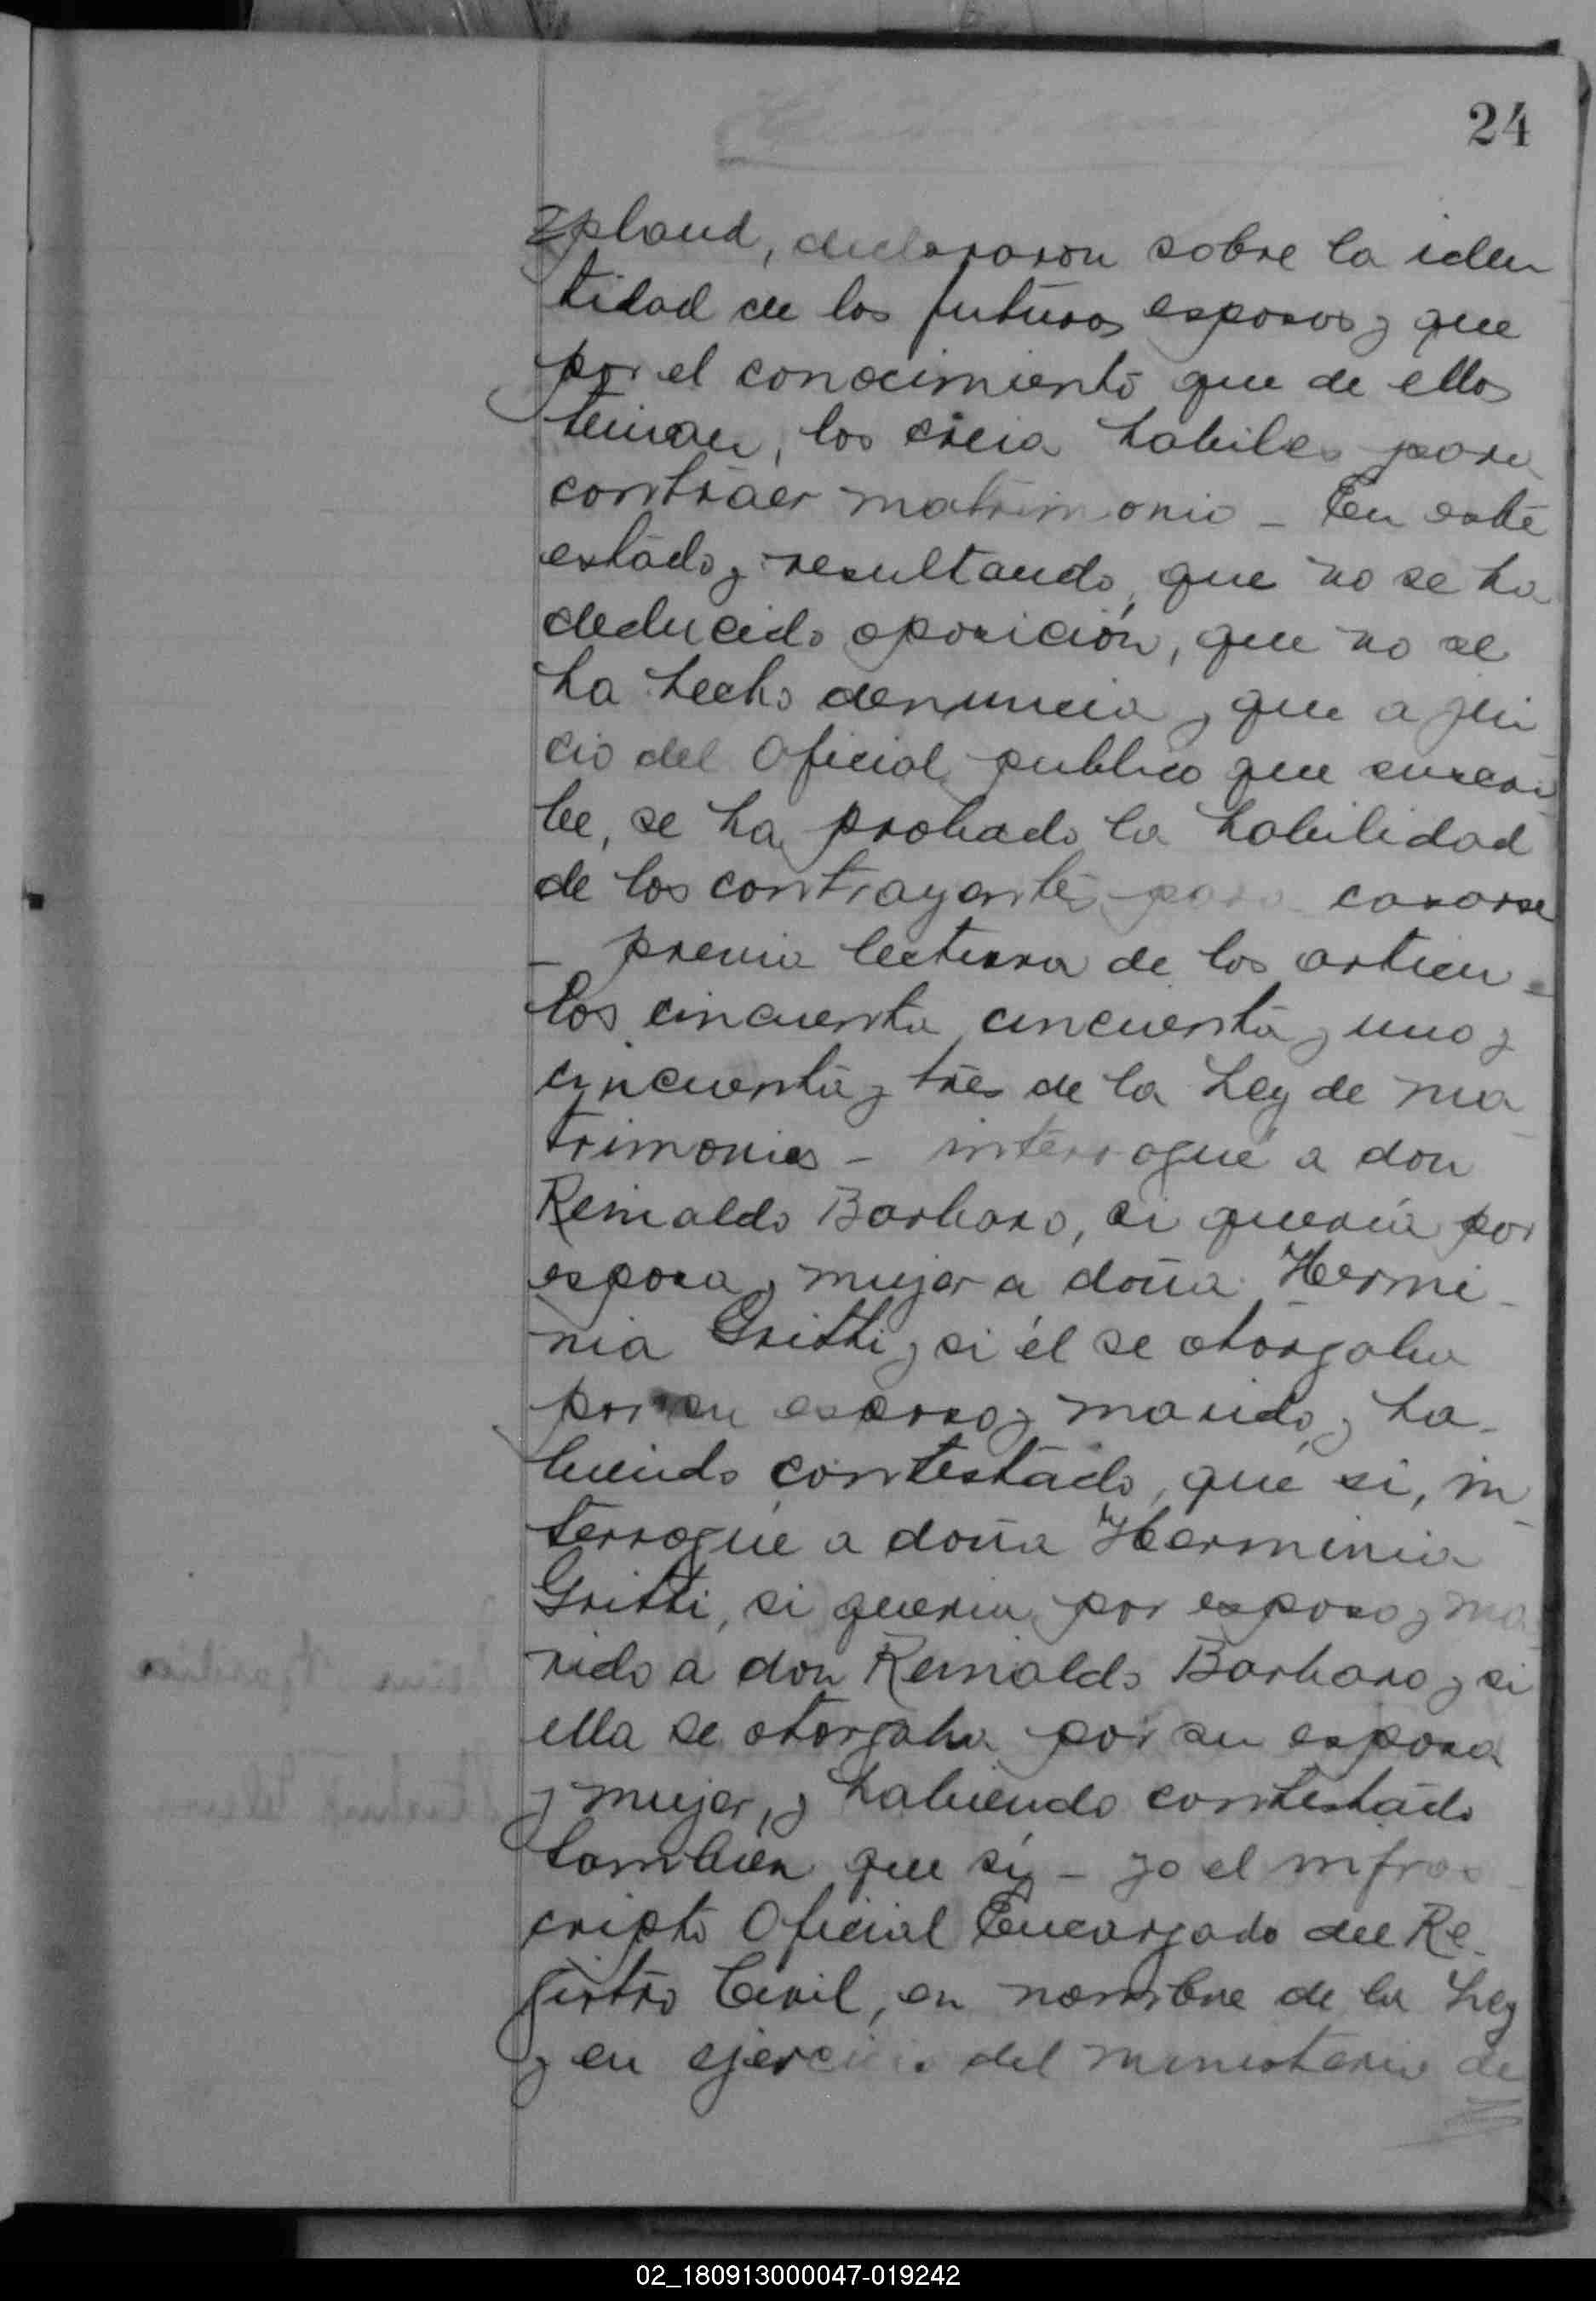 24
declararon sobre la iden
tidad de los futuros esposos y que
por el conocimiento que de ellos
tenian, los creia habiles para
contraer matrimonio - En este
estado y resultando, que no se ha
deducido oposición, que no se
ha hecho denuncia y que a jui
cio del Oficial publico que suscri
be, se ha probado la habilidad
de los contrayentes para casarse
- previa lectura de los articu-
los cincuenta, cincuenta y uno y
cincuenta y tres de la Ley de ma
trimonios - interrogué a don
Reinaldo Barbaro, si queria por
esposa y mujer a doña Hermi-
nia Gritti y si él se otorgaba
por su esposo y marido y ha-
biendo contestado, que si, in
terrogue a doña Herminia
Gritti, si queria por esposo y ma
rido a don Reinaldo Barbaro y si
ella se otorgaba por su esposa
y mujer, y habiendo contestado
tambien que si - yo el infras
cripto Oficial Encargado del Re-
gistro Civil, en nombre de la Ley
y en ejercicio del ministerio de
02_180913000047-019242